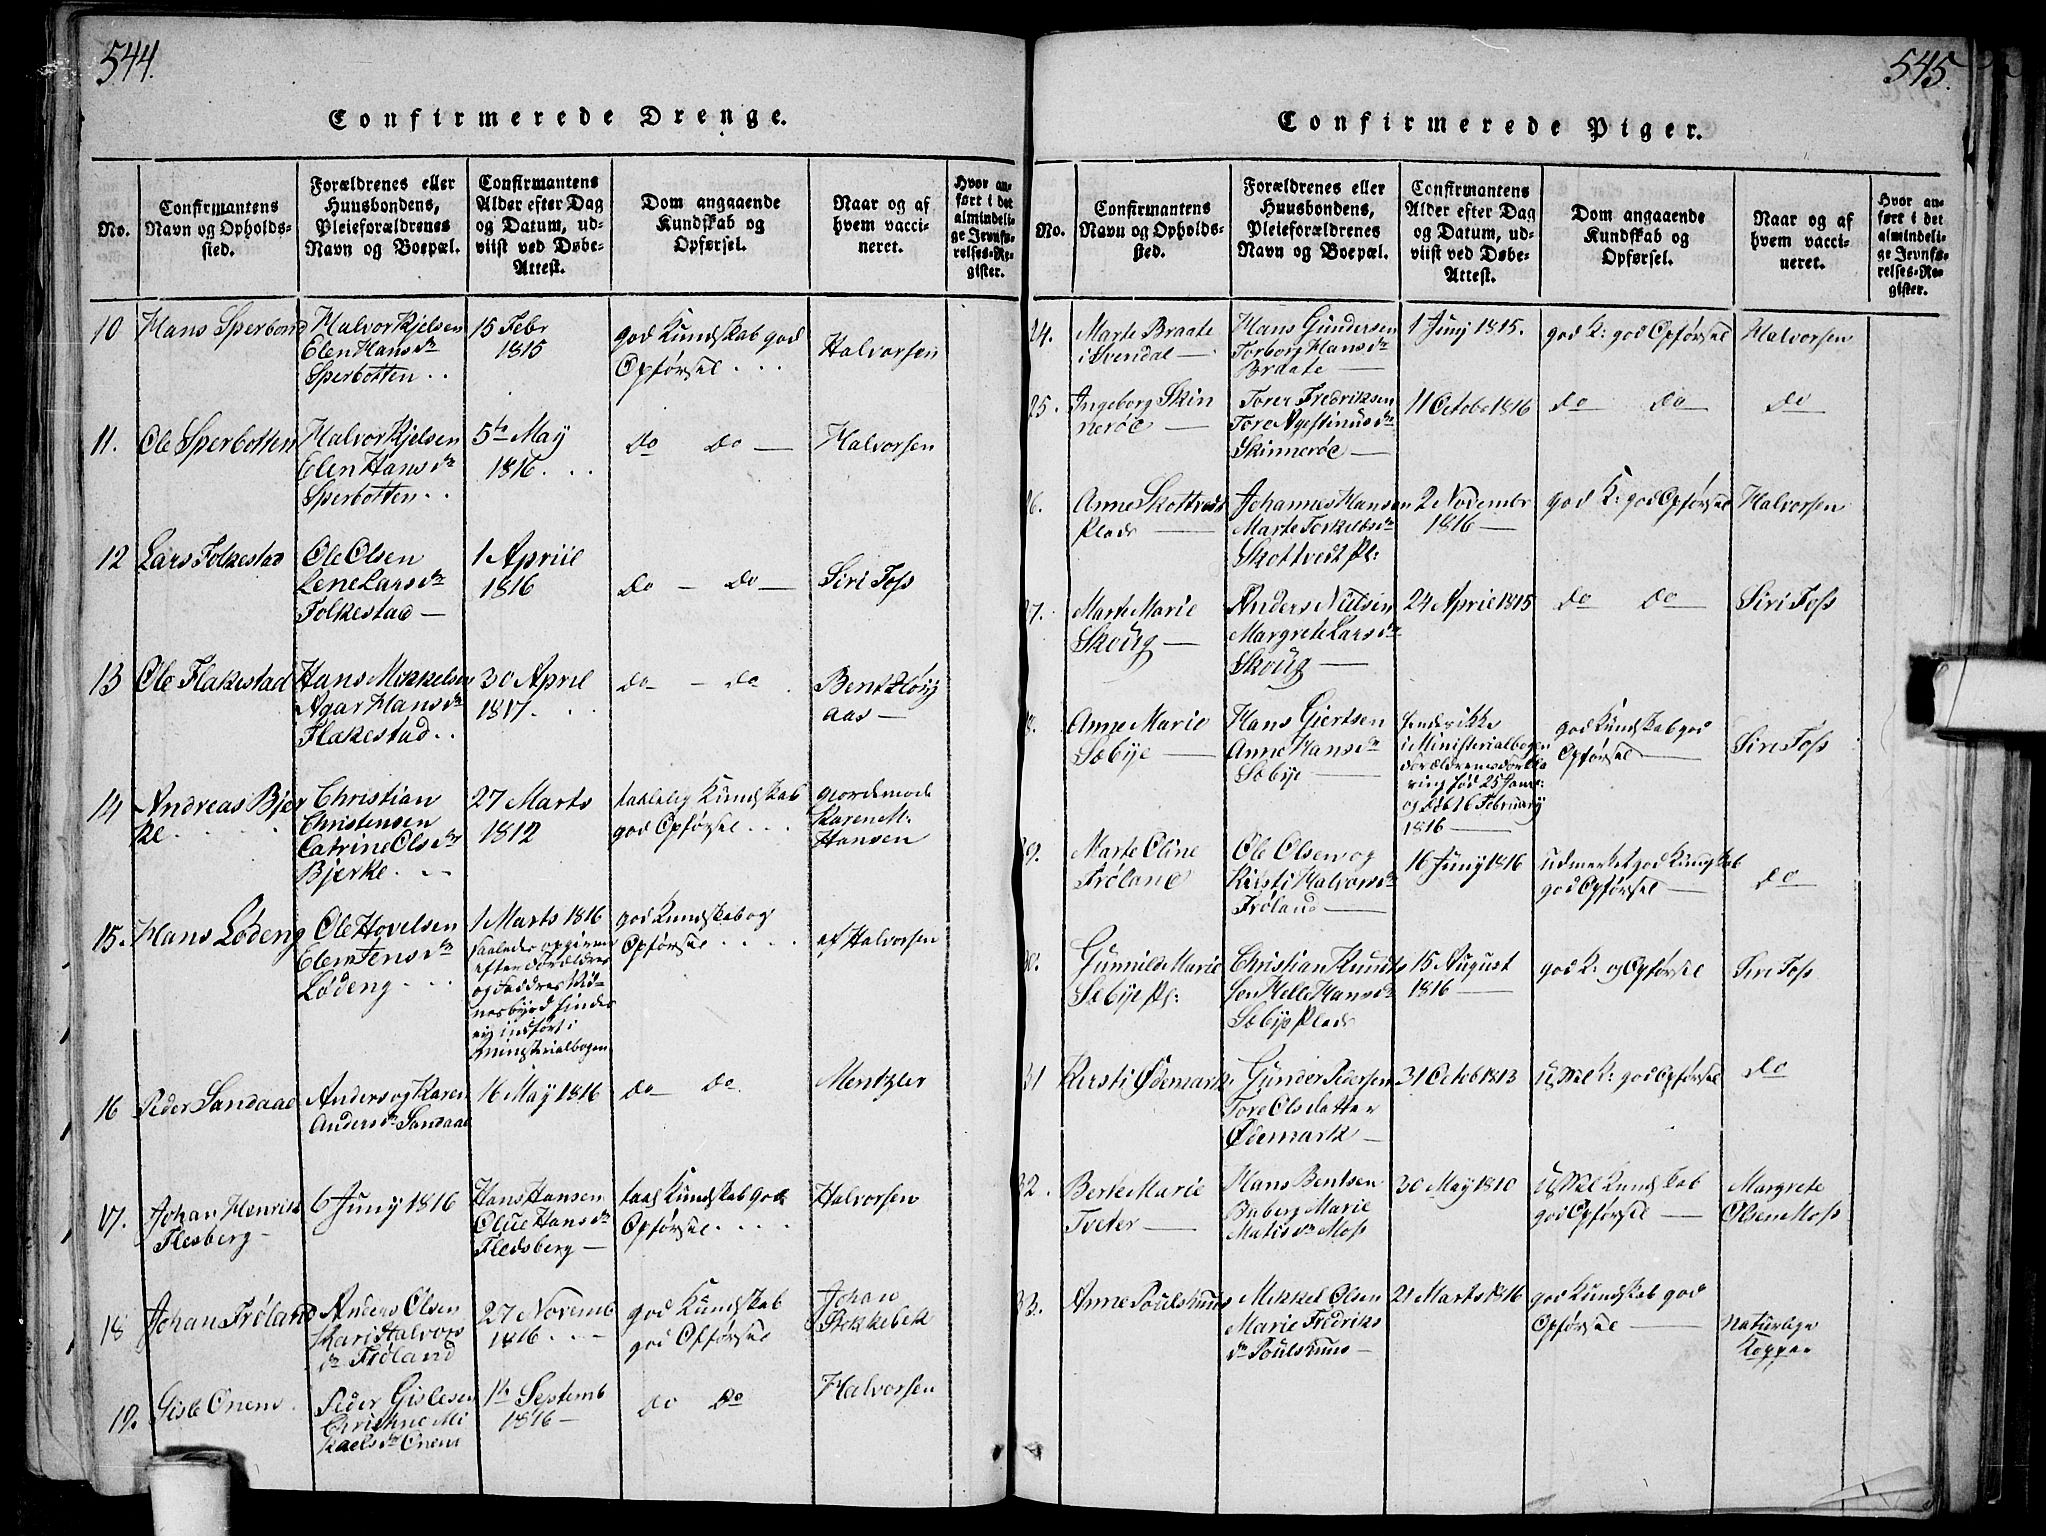 544.
Confirmerede Drenge.
No.
Confirmantens
Navn og Opholds-
sted.
Forældrenes eller
Huusbondens,
Pleieforældrenes
Navn og Boepæl.
Confirmantens
Alder efter Dag
og Datum, ud-
viist ved Døbe-
Attest.
Dom angaaende
Kundskab og
Opførsel.
Naar og af
hvem vacci-
neret.
Hvor an-
ført i det
almindeli-
ge Jevnfø-
relses-Re-
gister.
10
Hans Sperbond
Halvor Kjelsen
Elen Hansdr
Sperbotten . .
15 Febr
1815
god Kundskab god
Opførsel . . .
Halvorsen
11.
Ole Sperbotten
Halvor Kjelsen
Elen Hansdr
Sperbotten . .
5te May
1816 . . .
do do —
Halvorsen
12
Lars Folkestad
Ole Olsen
Lene Larsdr
Folkestad —
1 April
1816
do — do —
Siri Foss
13
Ole Flakestad
Hans Mikkelsen
Agar Hansdr
Flakestad . .
30 April
1817 . .
do — do .
Bent Höyj
aas —
14
Andreas Bjer
ke . . . .
Christian
Christensen
Catrine Olsdr
Bjerke . . .
27 Marts
1812
taalelig Kundskab
god Opførsel . . .
gjordemode
Karen M:
Hansen
15.
Hans Lødeng
Ole Hovelsen
Elen Jensdr
Lødeng . . .
1 Marts 1816
saaledes opgiven
efter Forældres
og Faddres Vid-
nesbyrd findes
ej indført i
Ministerialbogen
god Kundskab og
Opførsel . . . .
af Halvorsen
16
Peder Sandaae
Anders og Karen
Andersdr Sandaae
16 May 1816
do do
Mentzler
17.
Johan Henrik
Flesberg —
6 Juny 1816
Hans Hansen
Olue Hansdr
Fledsberg —
taal Kundskab god
Opførsel . . . .
Halvorsen
18
Johan Frøland
Anders Olsen
Kari Halvors
dr Frøland
27 Novemb
1816 . . .
god Kundskab
god Opførsel
Johan
Stokkebek
19.
Gisle Onem .
Peder Gislesen
Christine Mi
kaelsdr Onem
1te Septemb
1816 —
do do
Halvorsen
545.
Confirmerede Piger.
No.
Confirmantens
Navn og Opholds-
sted.
Forældrenes eller
Huusbondens,
Pleieforældrenes
Navn og Boepæl.
Confirmantens
Alder efter Dag
og Datum, ud-
viist ved Døbe-
Attest.
Dom angaaende
Kundskab og
Opførsel.
Naar og af
hvem vacci-
neret.
Hvor an-
ført i det
almindeli-
ge Jevnfø-
relses-Re-
gister.
24.
Marte Braate
i Svendal —
Hans Gundersen
Torborg Hansdr
Braate —
1 Juny 1815.
god K: god Opførsel
Halvorsen
25.
Ingeborg Skin
neröe —
Torer Fredriksen
Tore Agestinusdr
Skinneröe —
11 Octob 1816
do do
do
26.
Anne Skottveds
Plads
Johannes Hansen
Marte Torkildsdr
Skottvedt Pl:
2 Novembr
1816 —
god K: god Opførsel
Halvorsen
27.
Marte Marie
Skoug —
Anders Nielsen
Margrete Larsdr
Skoug —
24 April 1815
do do
Siri Foss
28.
Anne Marie
Sæbye —
Hans Gjertsen
Anne Hansdr
Sæbye —
findes ikke
i Ministerialbogen
Forældrenes Forkla
ring fød 25 Janr:
og døbt 6 February
1816 —
god Kundskab god
Opførsel —
Siri Foss
29.
Marte Oline
Frøland
Ole Olsen og
Kirsti Halvorsdr
Frøland —
16 Juny 1816
udmerket god Kundskab
god Opførsel —
do
30.
Gunnild Marie
Sæbye Pl:
Christian Knuds
sen Helle Hansdr
Sæbye Plads
15 August
1816 —
god K: og Opførsel
Siri Foss
31
Kirsti Ødemark
Gunder Pedersen
Tore Olsdatter
Ødemark —
31 Octob 1813
god Opførsel
do
32.
Berte Marie
Tveter —
Hans Bentsen
Marie
Matisdr Moss
30 May 1810
Kundskab
god Opførsel —
Margrete
Olsen Moss
33.
Anne Poulshuus
Mikkel Olsen
Marie Fredriks
dr Poulshuus —
21 Marts 1816
god Kundskab god
Opførsel —
Naturlige
Kopper